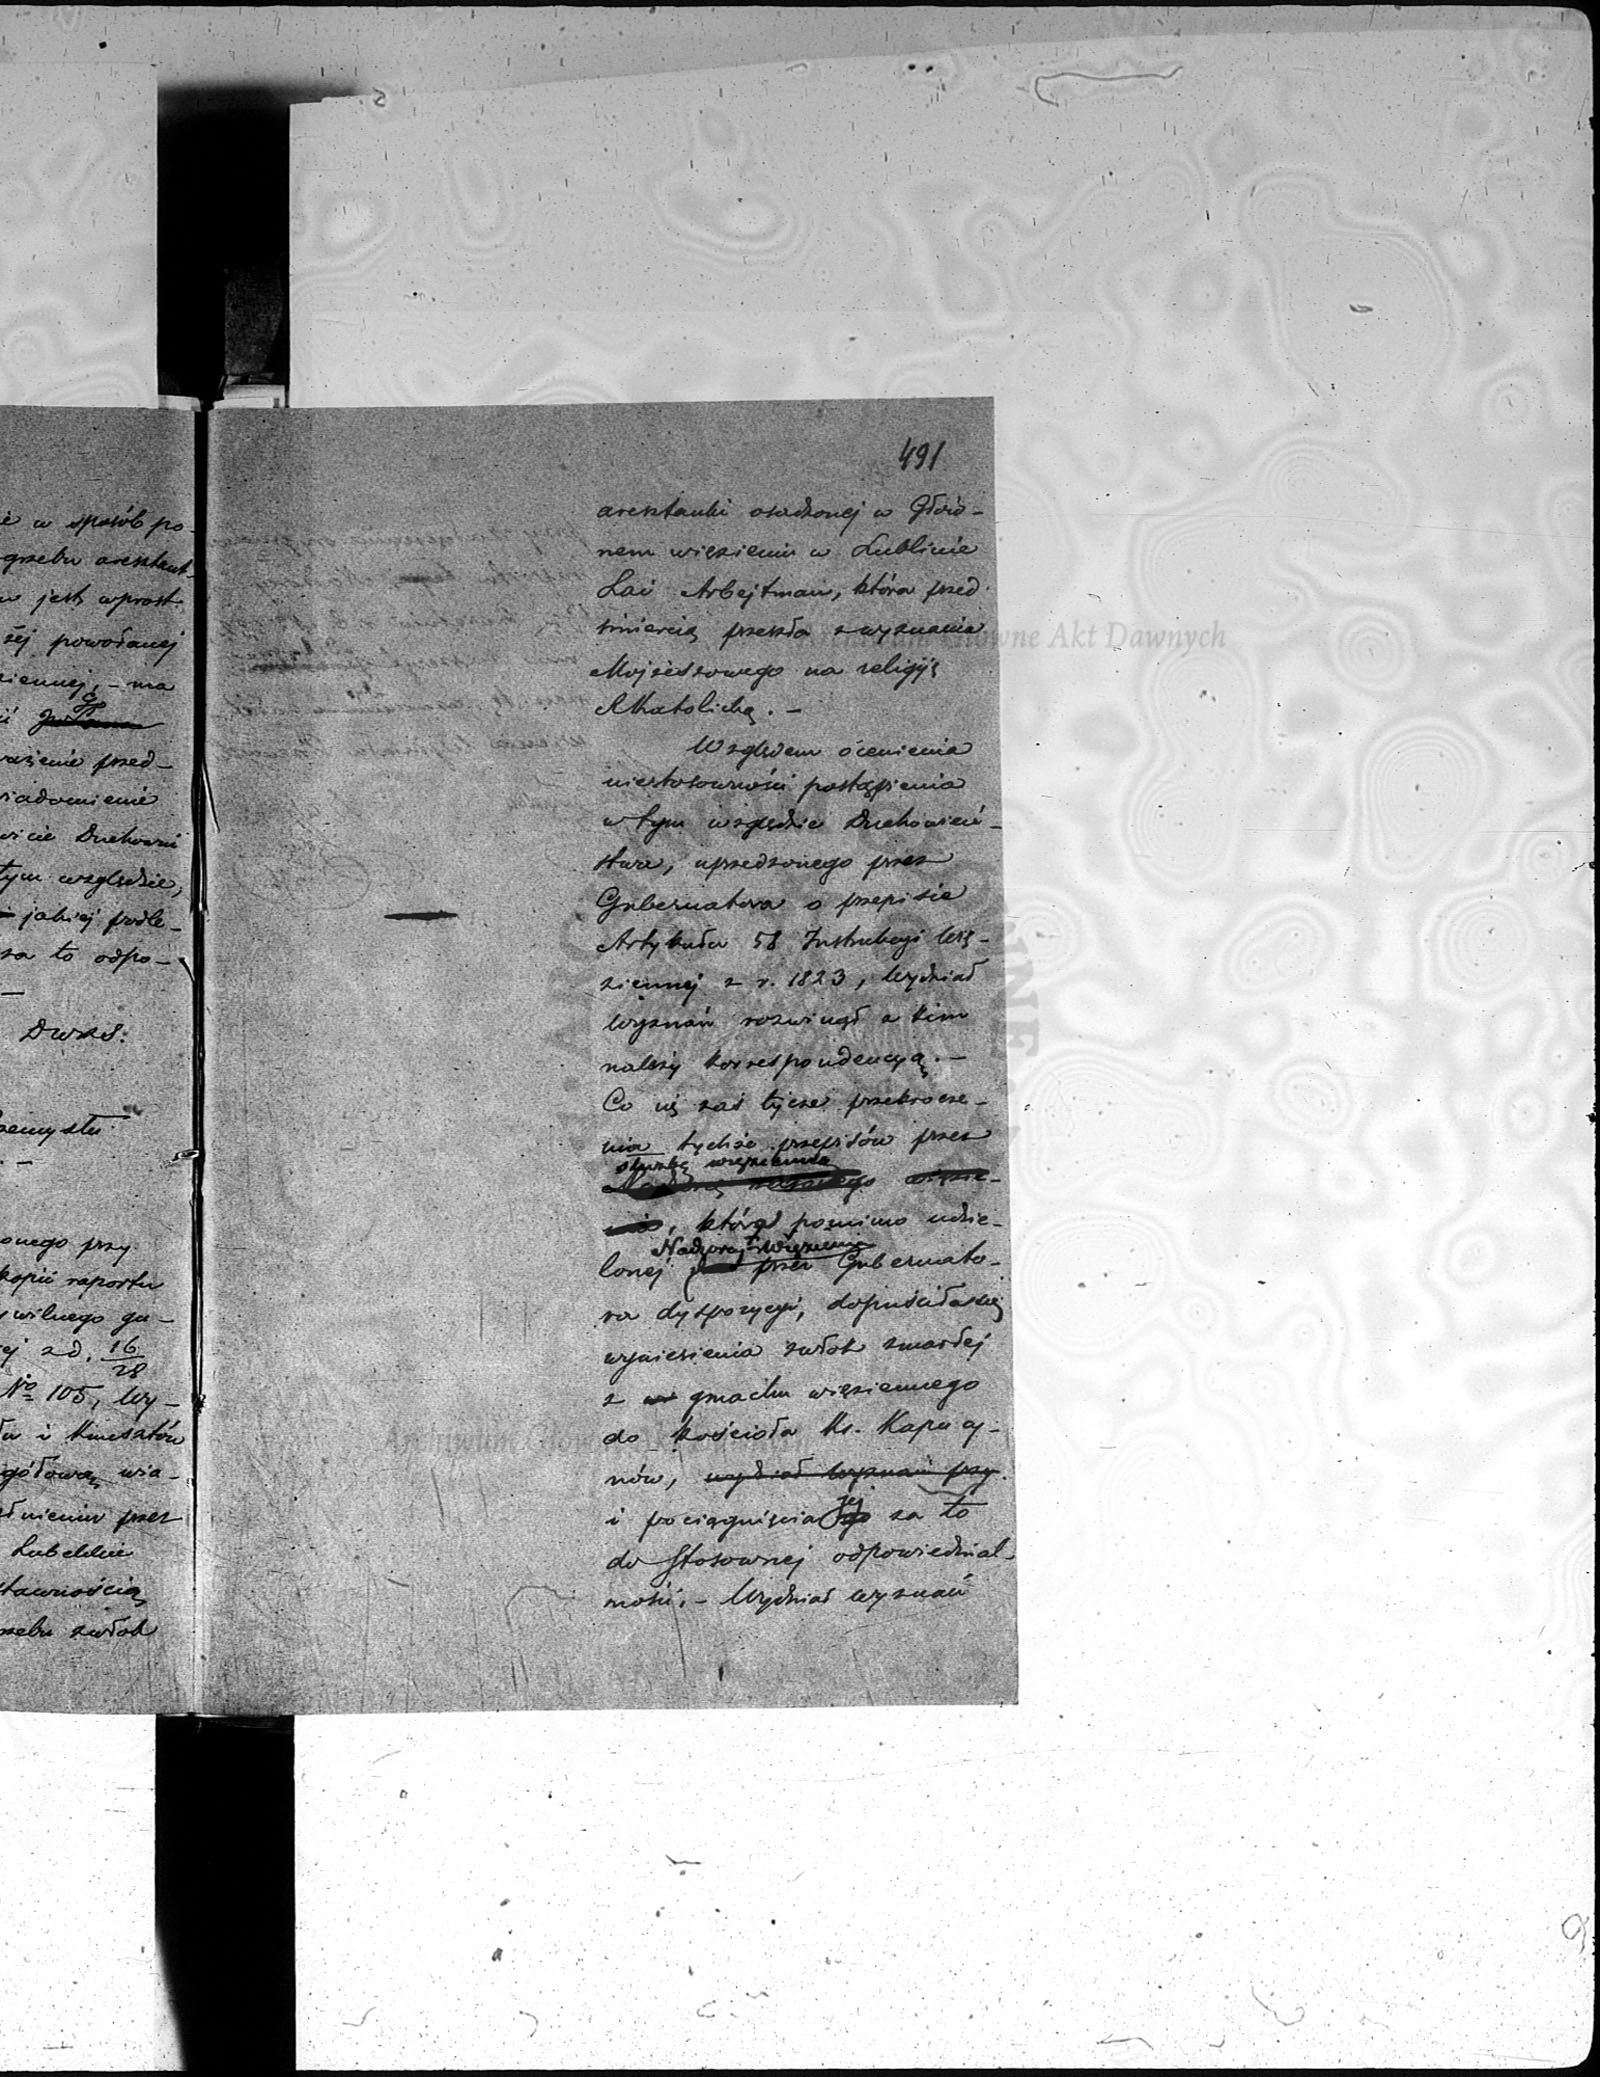 è w sposób po-
grzebu aresztant-
w jest wprost
żéj powołanej
ziennej, - ma
ważenie przed-
wiadomienié
wicie Duchowni
tym względzie,
jakiej podle-
za to odpo-
DWKS.
zemysłu
onego przy
kopii raportu
ywilnego gu-
ej z d. 16/28
No 105, Wy-
łu i Kunsztów
gółową wia-
łnieniu przez
Lubelskie
stawnością
zebu zwłok
491
aresztantki osadzonej w Głów-
nem więzieniu w Lublinie
Łai Arbejtman, która przed
śmiercią przeszła z wyznania
Mojżeszowego na religiję
Katolicką. -
Względem ocenienia
niestosowności postąpienia
w tym względzie Duchowień-
stwa, uprzedzonego przez
Gubernatora o przepisie
Artykułu 58 Instrukcyi Wię-
ziennej z r. 1823, Wydział
Wyznań rozwinął z kim
należy korrespondencyą. -
Co się zaś tycze przekrocze-
nia tychże przepisów przez
służbę więzienną
Nadzorcę więzie-
nia, która pomimo udzie-
Nadzorcy Więzienia
lonej przez Gubernato-
ra dyspozycyi, dopuściła się
wyniesienia zwłok zmarłej
z gmachu więziennego
do Kościoła Ks. Kapucy-
nów, wydział wyznań przy
i pociągnięcia jej za to
do stosownej odpowiedzial-
ności, - Wydział wyznań
Archiwum Główne Akt Dawnych